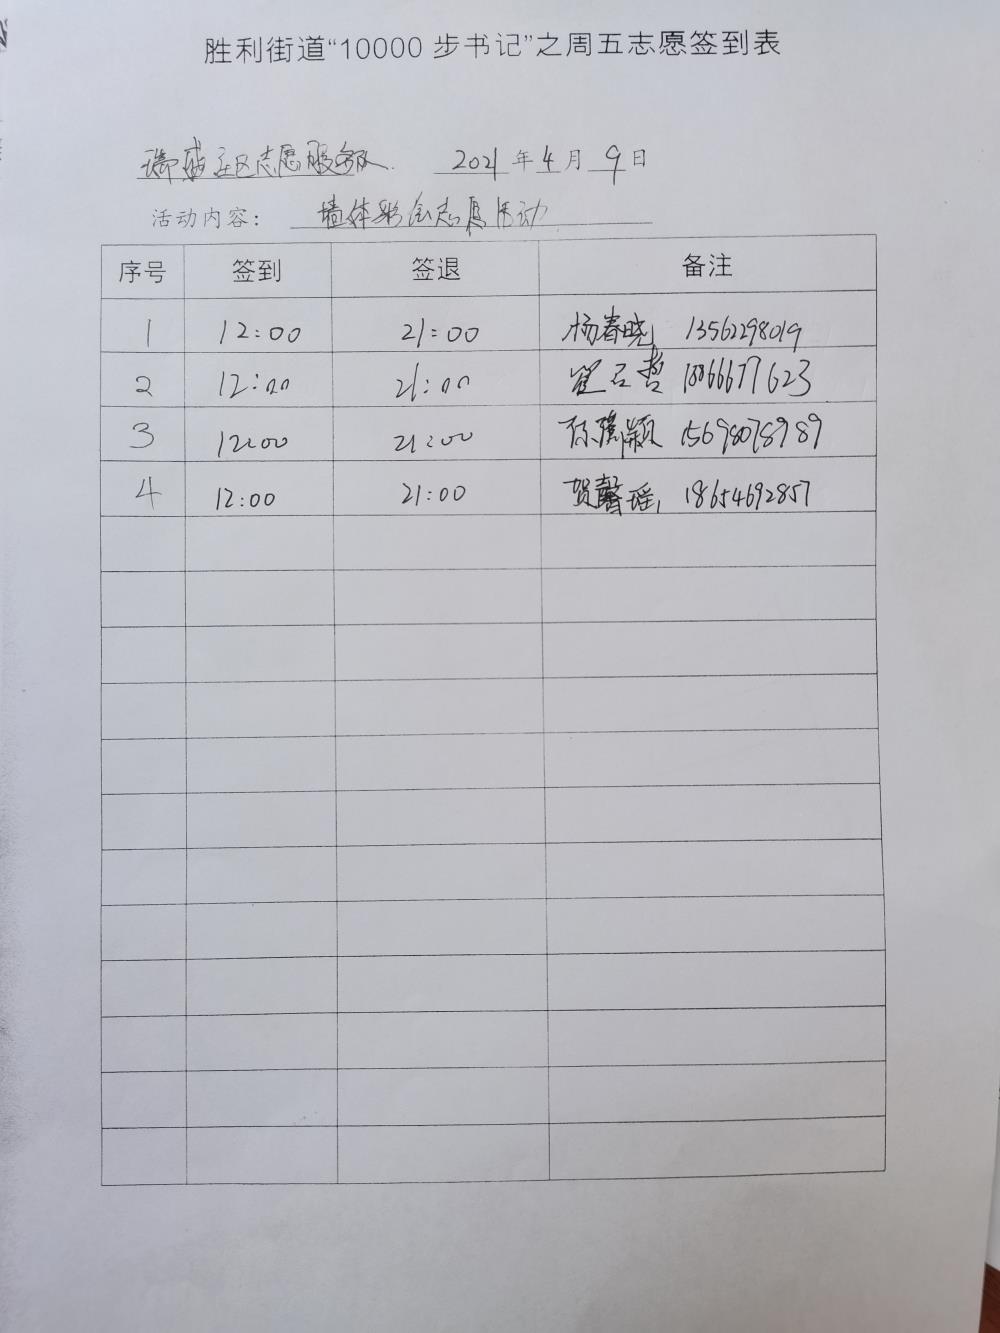 胜利街道“10000步书记”之周五志愿签到表
瑞盛社区志愿服务队 2021年4月9日
活动内容： 墙体彩绘志愿活动
序号 签到 签退 备注
1 12:00 21:00 杨春晓 13562298019
2 12:00 21:00 18866677623
3 12:00 21:00 15698078989
4 12:00 21:00 贺馨瑶 18654692857